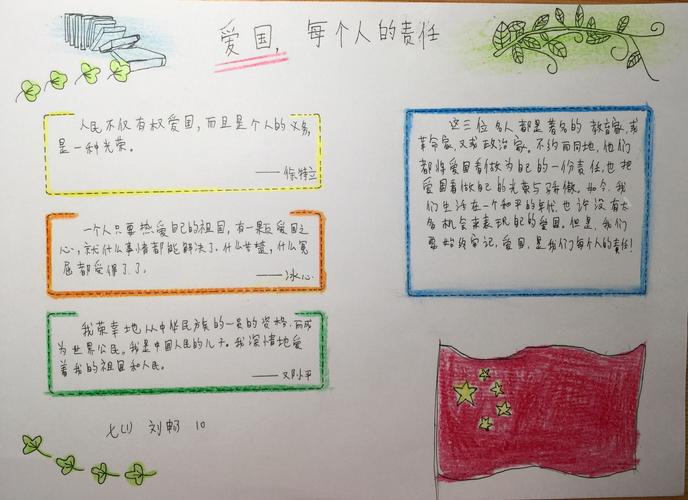 爱国，每个人的责任
人民不仅有权爱国，而且是个人的义务，
是一种光荣。
——徐特立
一个人只要热爱自己的祖国，有一颗爱国之
心，就什么事情都能解决了。什么苦楚，什么冤
屈都受得了了。
——冰心
我荣幸地以中华民族的一员的资格，而成
为世界公民。我是中国人民的儿子。我深情地爱
着我的祖国和人民。
——邓小平
七(1) 刘畅 10
这三位名人都是著名的教育家，或
革命家，又或政治家。不约而同地，他们
都将爱国看做为自己的一份责任，也把
爱国看做自己的光荣与骄傲。如今，我
们生活在一个和平的年代，也许没有太
多机会来表现自己的爱国。但是，我们
要始终牢记，爱国，是我们每个人的责任！